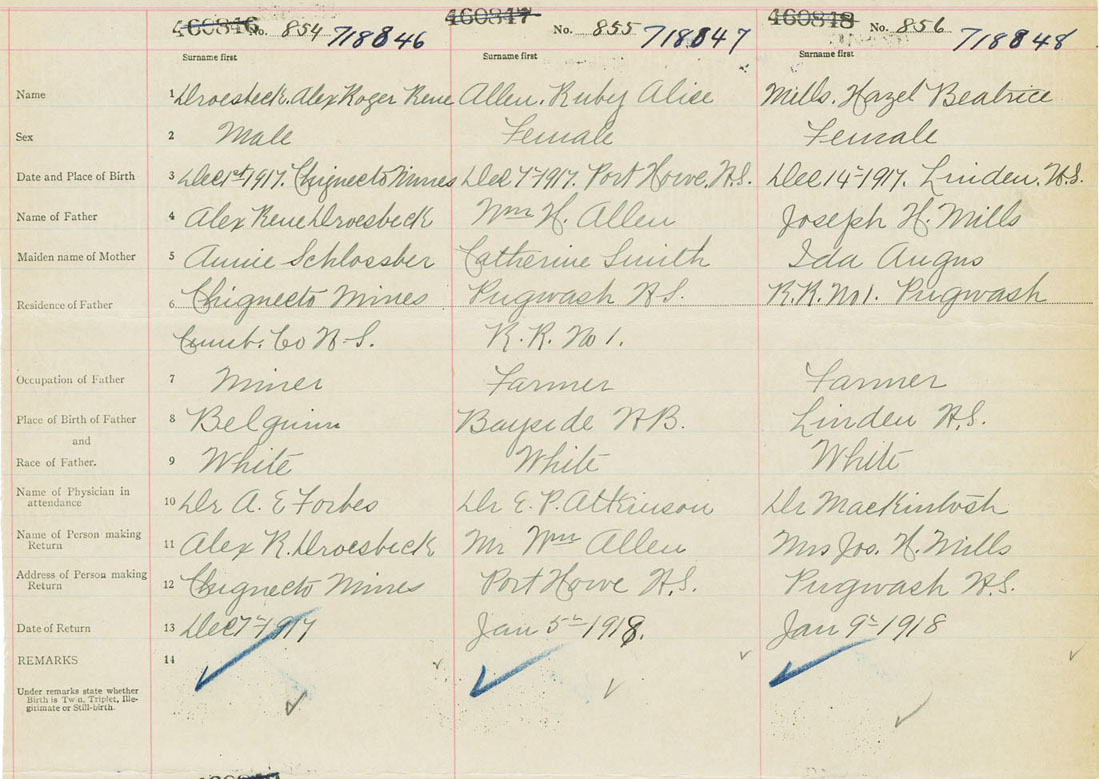 460846 No. 854 718846 460847 No. 855 718847 460848 No. 856 718848
Surname first Surname first Surname first
Name 1 Droesbeck. Alex Roger Rene Allen. Ruby Alice Mills. Hazel Beatrice
Sex 2 Male Female Female
Date and Place of Birth 3 Dec 1st 1917. Chignecto Mines Dec 7th 1917. Port Howe, N.S. Dec. 14th 1917. Linden, N.S.
Name of Father 4 Alex Rene Droesbeck Wm H. Allen Joseph H. Mills
Maiden name of Mother 5 Annie Schlossber Catherine Smith Ida Angus
Residence of Father 6 Chignecto Mines Pugwash N.S. R.R. No 1. Pugwash
Cumb. Co N-S. R.R. No 1.
Occupation of Father 7 Miner Farmer Farmer
Place of Birth of Father 8 Belguim Bayside N.B. Linden N.S.
and
Race of Father. 9 White White White
Name of Physician in
attendance 10 Dr A. E Forbes Dr E. P. Atkinson Dr Mackintosh
Name of Person making
Return 11 Alex R. Droesbeck Mr Wm Allen Mrs Jos. H. Mills
Address of Person making
Return 12 Chignecto Mines Port Howe N.S. Pugwash N.S.
Date of Return 13 Dec 7th 1917 Jan 5th 1918. Jan 9th 1918
REMARKS 14
Under remarks state whether
Birth is Twin, Triplet, Ille-
gitimate or Still-birth.